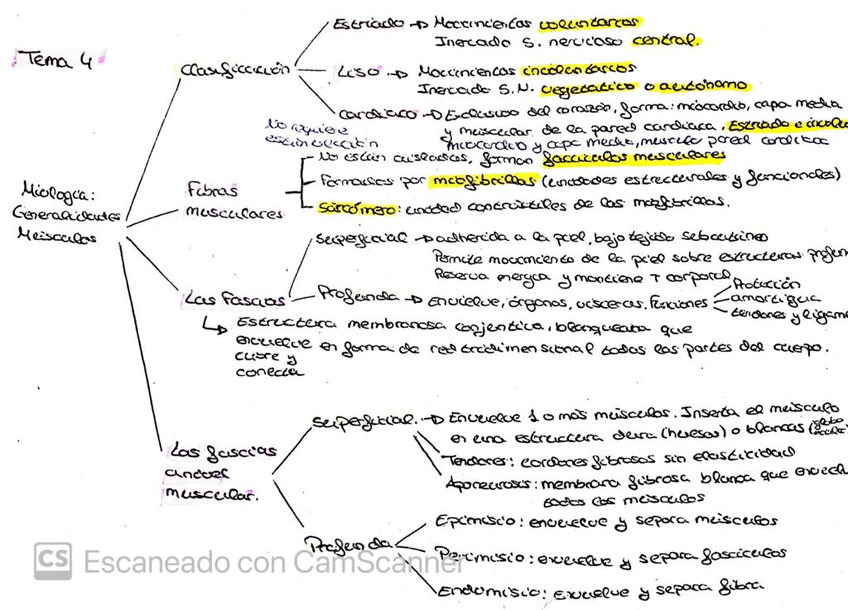 Tema 4
Miología:
Generalidades
Músculos
Clasificación
Estriado → Movimientos voluntarios
Inervado S. nervioso central.
Liso → Movimientos involuntarios
Inervado S.N. vegetativo o autónomo
Cardiaco → Exclusivo del corazón, forma: miocardio, capa media
y muscular de la pared cardiaca. Estriado e involu
No requiere
estimulación
miocardio y capa media, músculo pared cardíaca
Fibras
musculares
No están aisladas, forman fascículos musculares
Formados por miofibrillas (unidades estructurales y funcionales)
Sarcómero: unidad contráctiles de las miofibrillas.
Las Fascias
Superficial → adherida a la piel, bajo tejido subcutáneo
Permite movimiento de la piel sobre estructuras profun
Reserva energía y mantiene T corporal
Profunda → Envuelve, órganos, vísceras. Funciones
Protección
amortigua
tendones y ligame
↳ Estructura membranosa conjentiva, blanqueata que
envuelve en forma de red tridimensional todas las partes del cuerpo.
cubre y
conecta
Las fascias
a nivel
muscular.
Superficial. → Envuelve 1 o más músculos. Inserta el músculo
en una estructura dura (huesos) o blancas (globo
Tendones: cordones fibrosos sin elasticidad
Aponeurosis: membrana fibrosa blanca que envuel
todos los músculos
Profunda
Epimisio: envuelve y separa músculos
Perimisio: envuelve y separa fascículos
Endomisio: envuelve y separa fibra
CS Escaneado con CamScanner